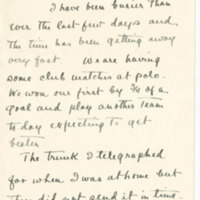 I have been busier than
ever the last few days and
the time has been getting away
very fast   We are having
some club matches at polo.
We won our first by ¼ of a
goal and play another team
to day expecting to get
beaten
The trunk I telegraphed
for when I was at home but
they did not send it in time